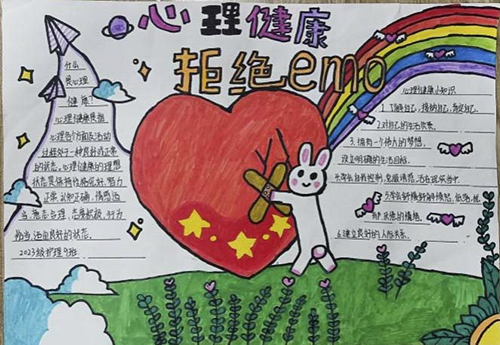 心理健康
拒绝emo
什么
是心理
健康？
心理健康是指
心理各个方面及活动
过程处于一种良好或正常
的状态。心理健康的理想
状态是保持性格完好、智力
正常、认知正确、情感适
当、意志合理、态度积极、行为
恰当、适应良好的状态。
2023级护理9班
心理健康小知识
1.了解自己，接纳自己，肯定自己。
2.对自己的生活负责。
3.拥有一个伟大的梦想，
设立明确的生活目标。
5.学会舒缓
和未愈的情绪。
6.建立良好的人际关系。